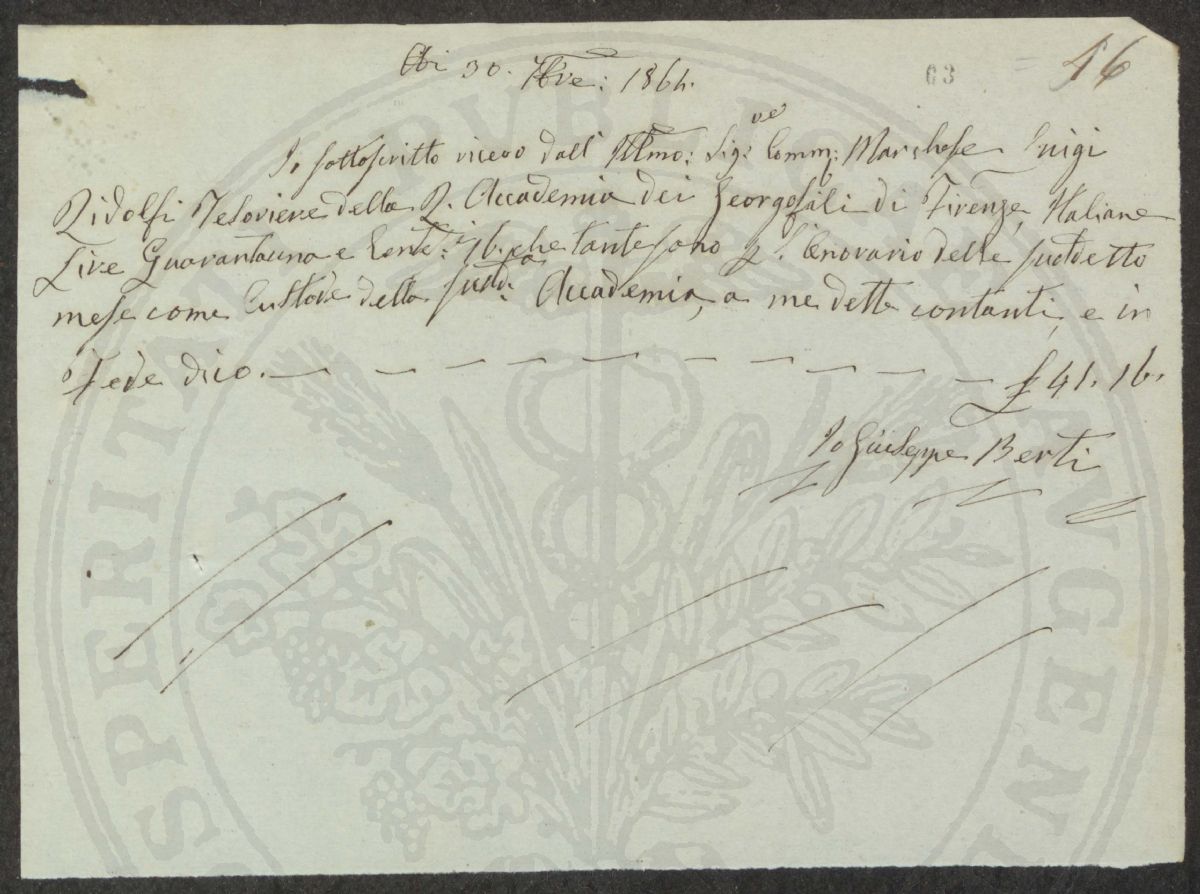 Adi 30. 9bre: 1864.
63 = 46
Io sottoscritto ricevo dall' Illmo: Sig:re Comm: Marchese Luigi
Ridolfi Tesoriere della R. Accademia dei Georgofili di Firenze, Italiane
Lire Quarantauna e Cent:i 16. che tante sono p. l'Onorario delle suddetto
mese come Custode della sudd:a Accademia, a me dette contanti, e in
Fede dico. — — — — — — — — — £ 41. 16.
Io Giuseppe Berti
PROSPERITATI PVBLICAE AVGENDAE